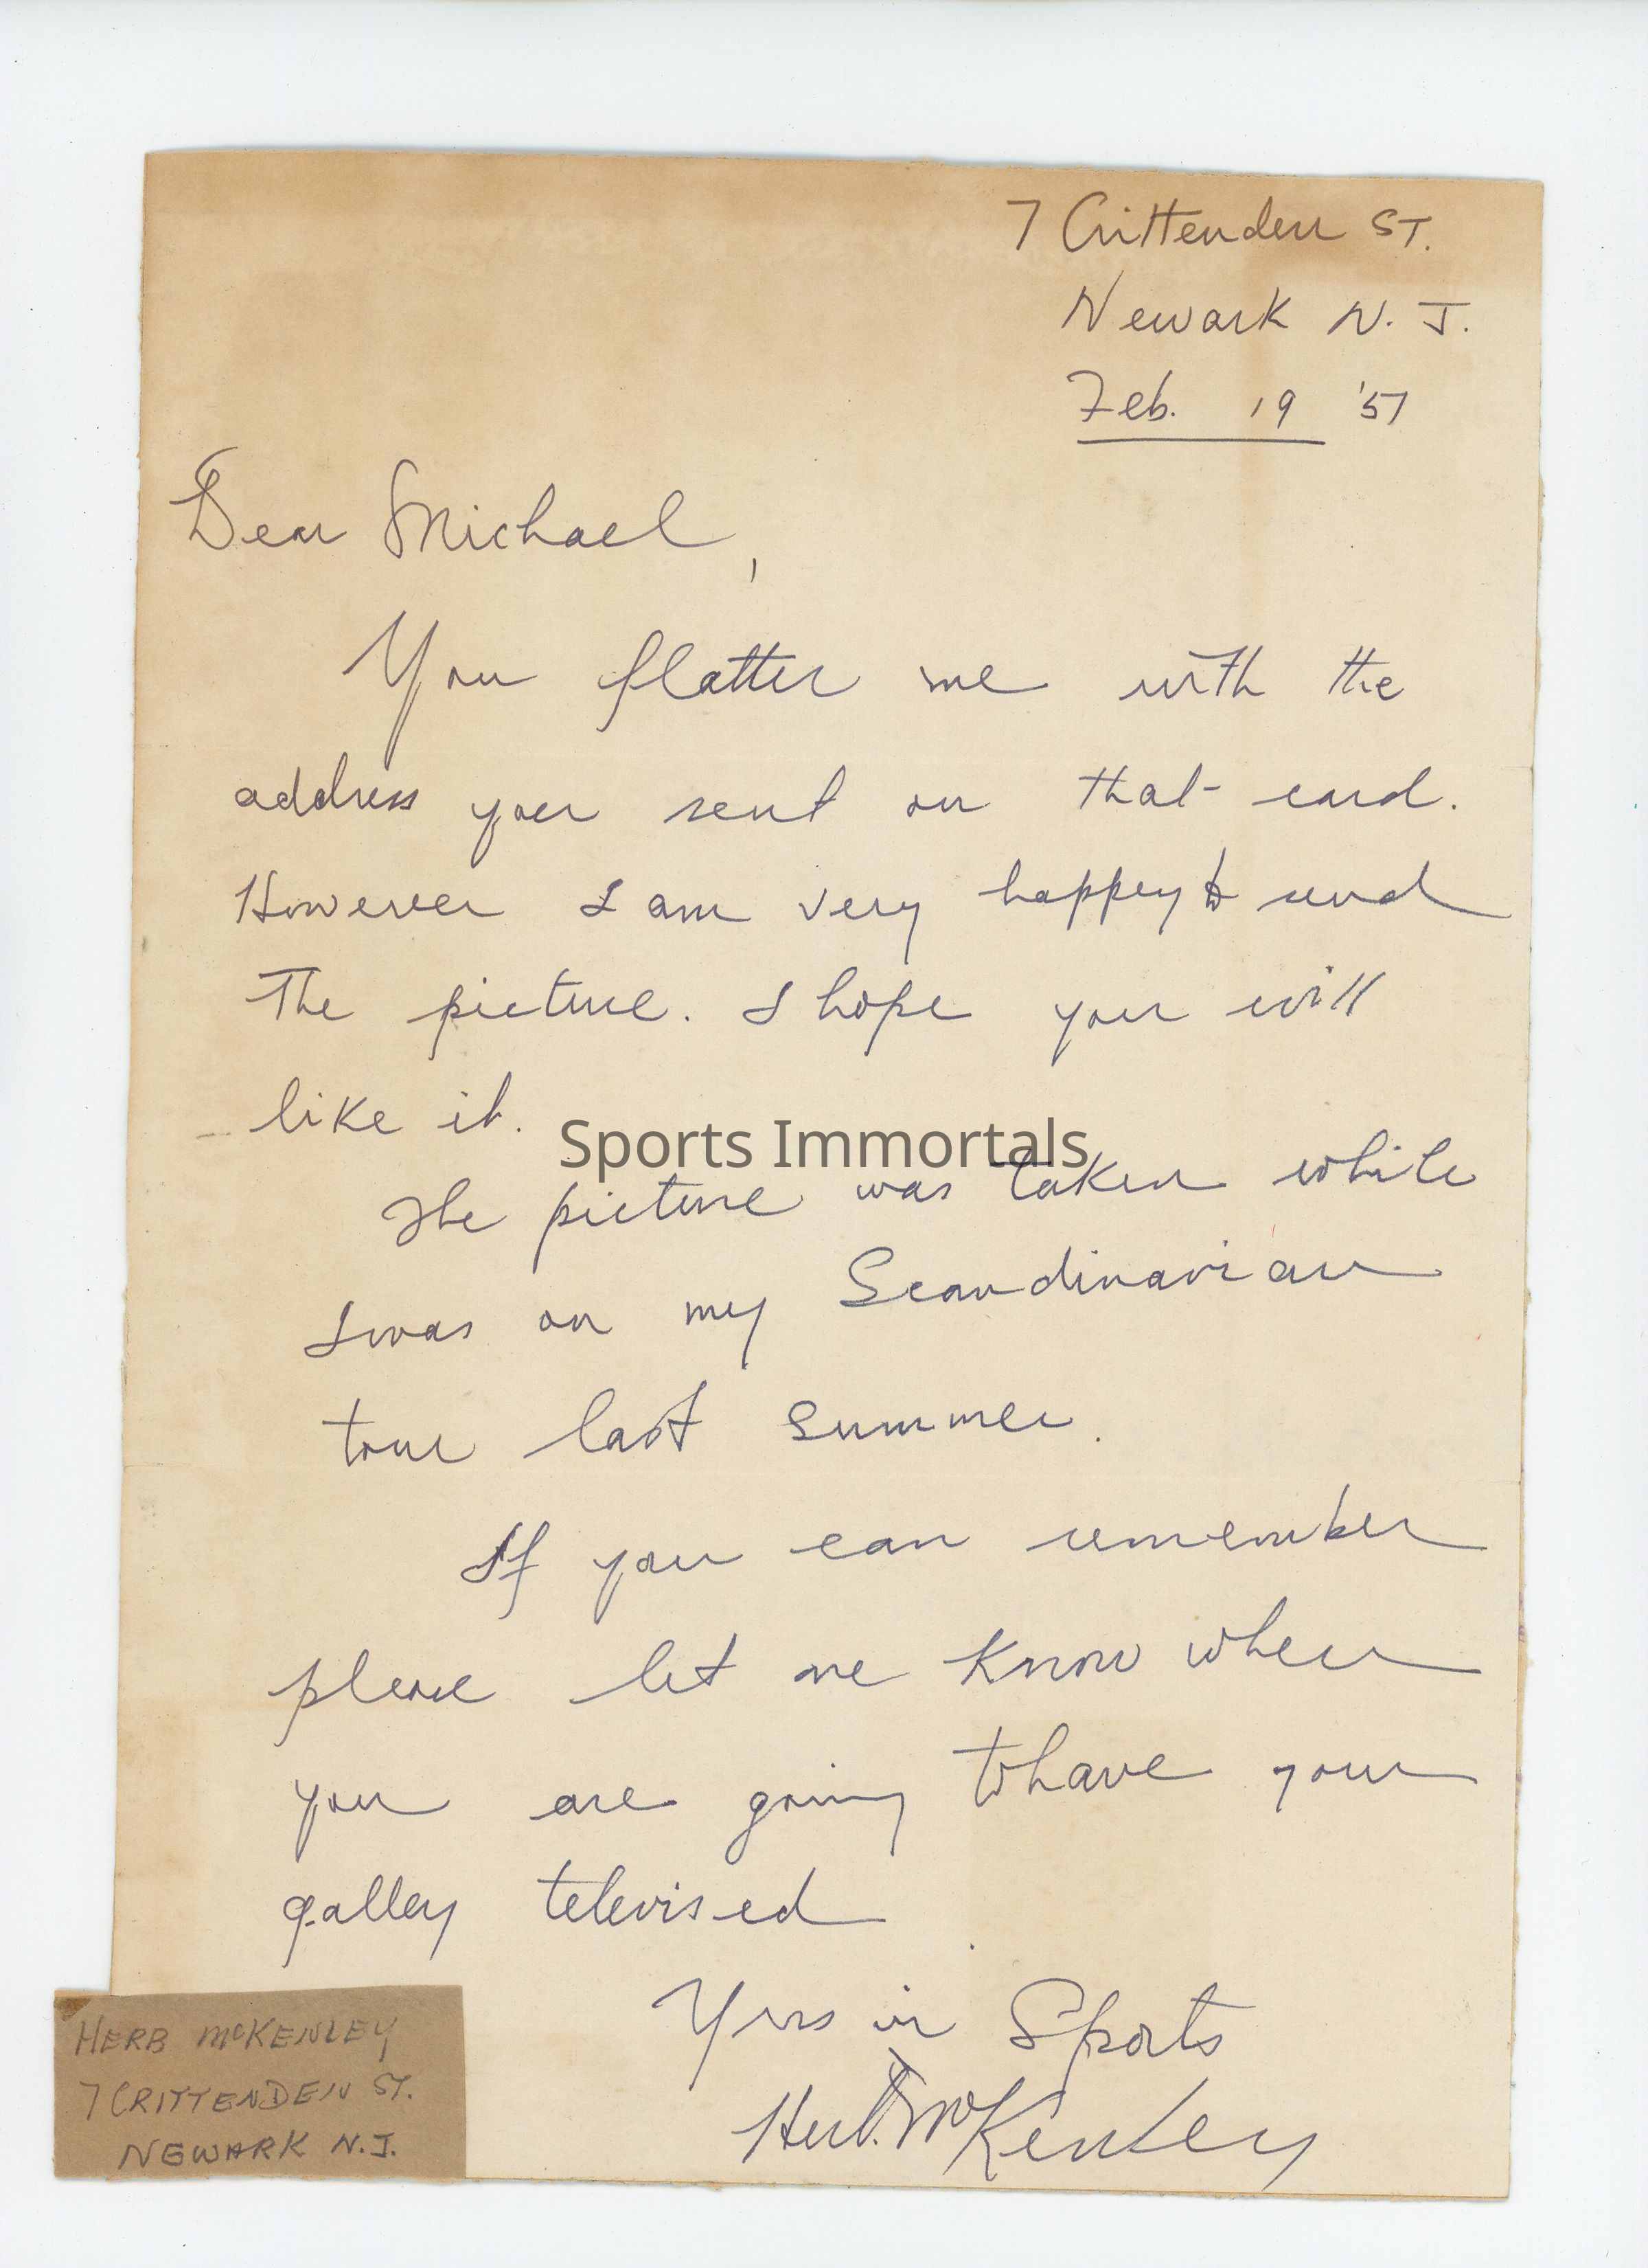 7 Crittenden ST.
Newark N. J.
Feb. 19 '51
Dear Michael,
You flatter me with the
address you sent on that card.
However I am very happey to send
The picture. I hope you will
like it.
Sports Immortals
The picture was taken while
I was on my Scandinavian
tour last summer.
If you can remember
please let me know when
you are going to have your
galley televised
Yrs in Sports
Herb. McKenley
HERB McKENLEY
7 CRITTENDEN ST.
NEWARK N.J.